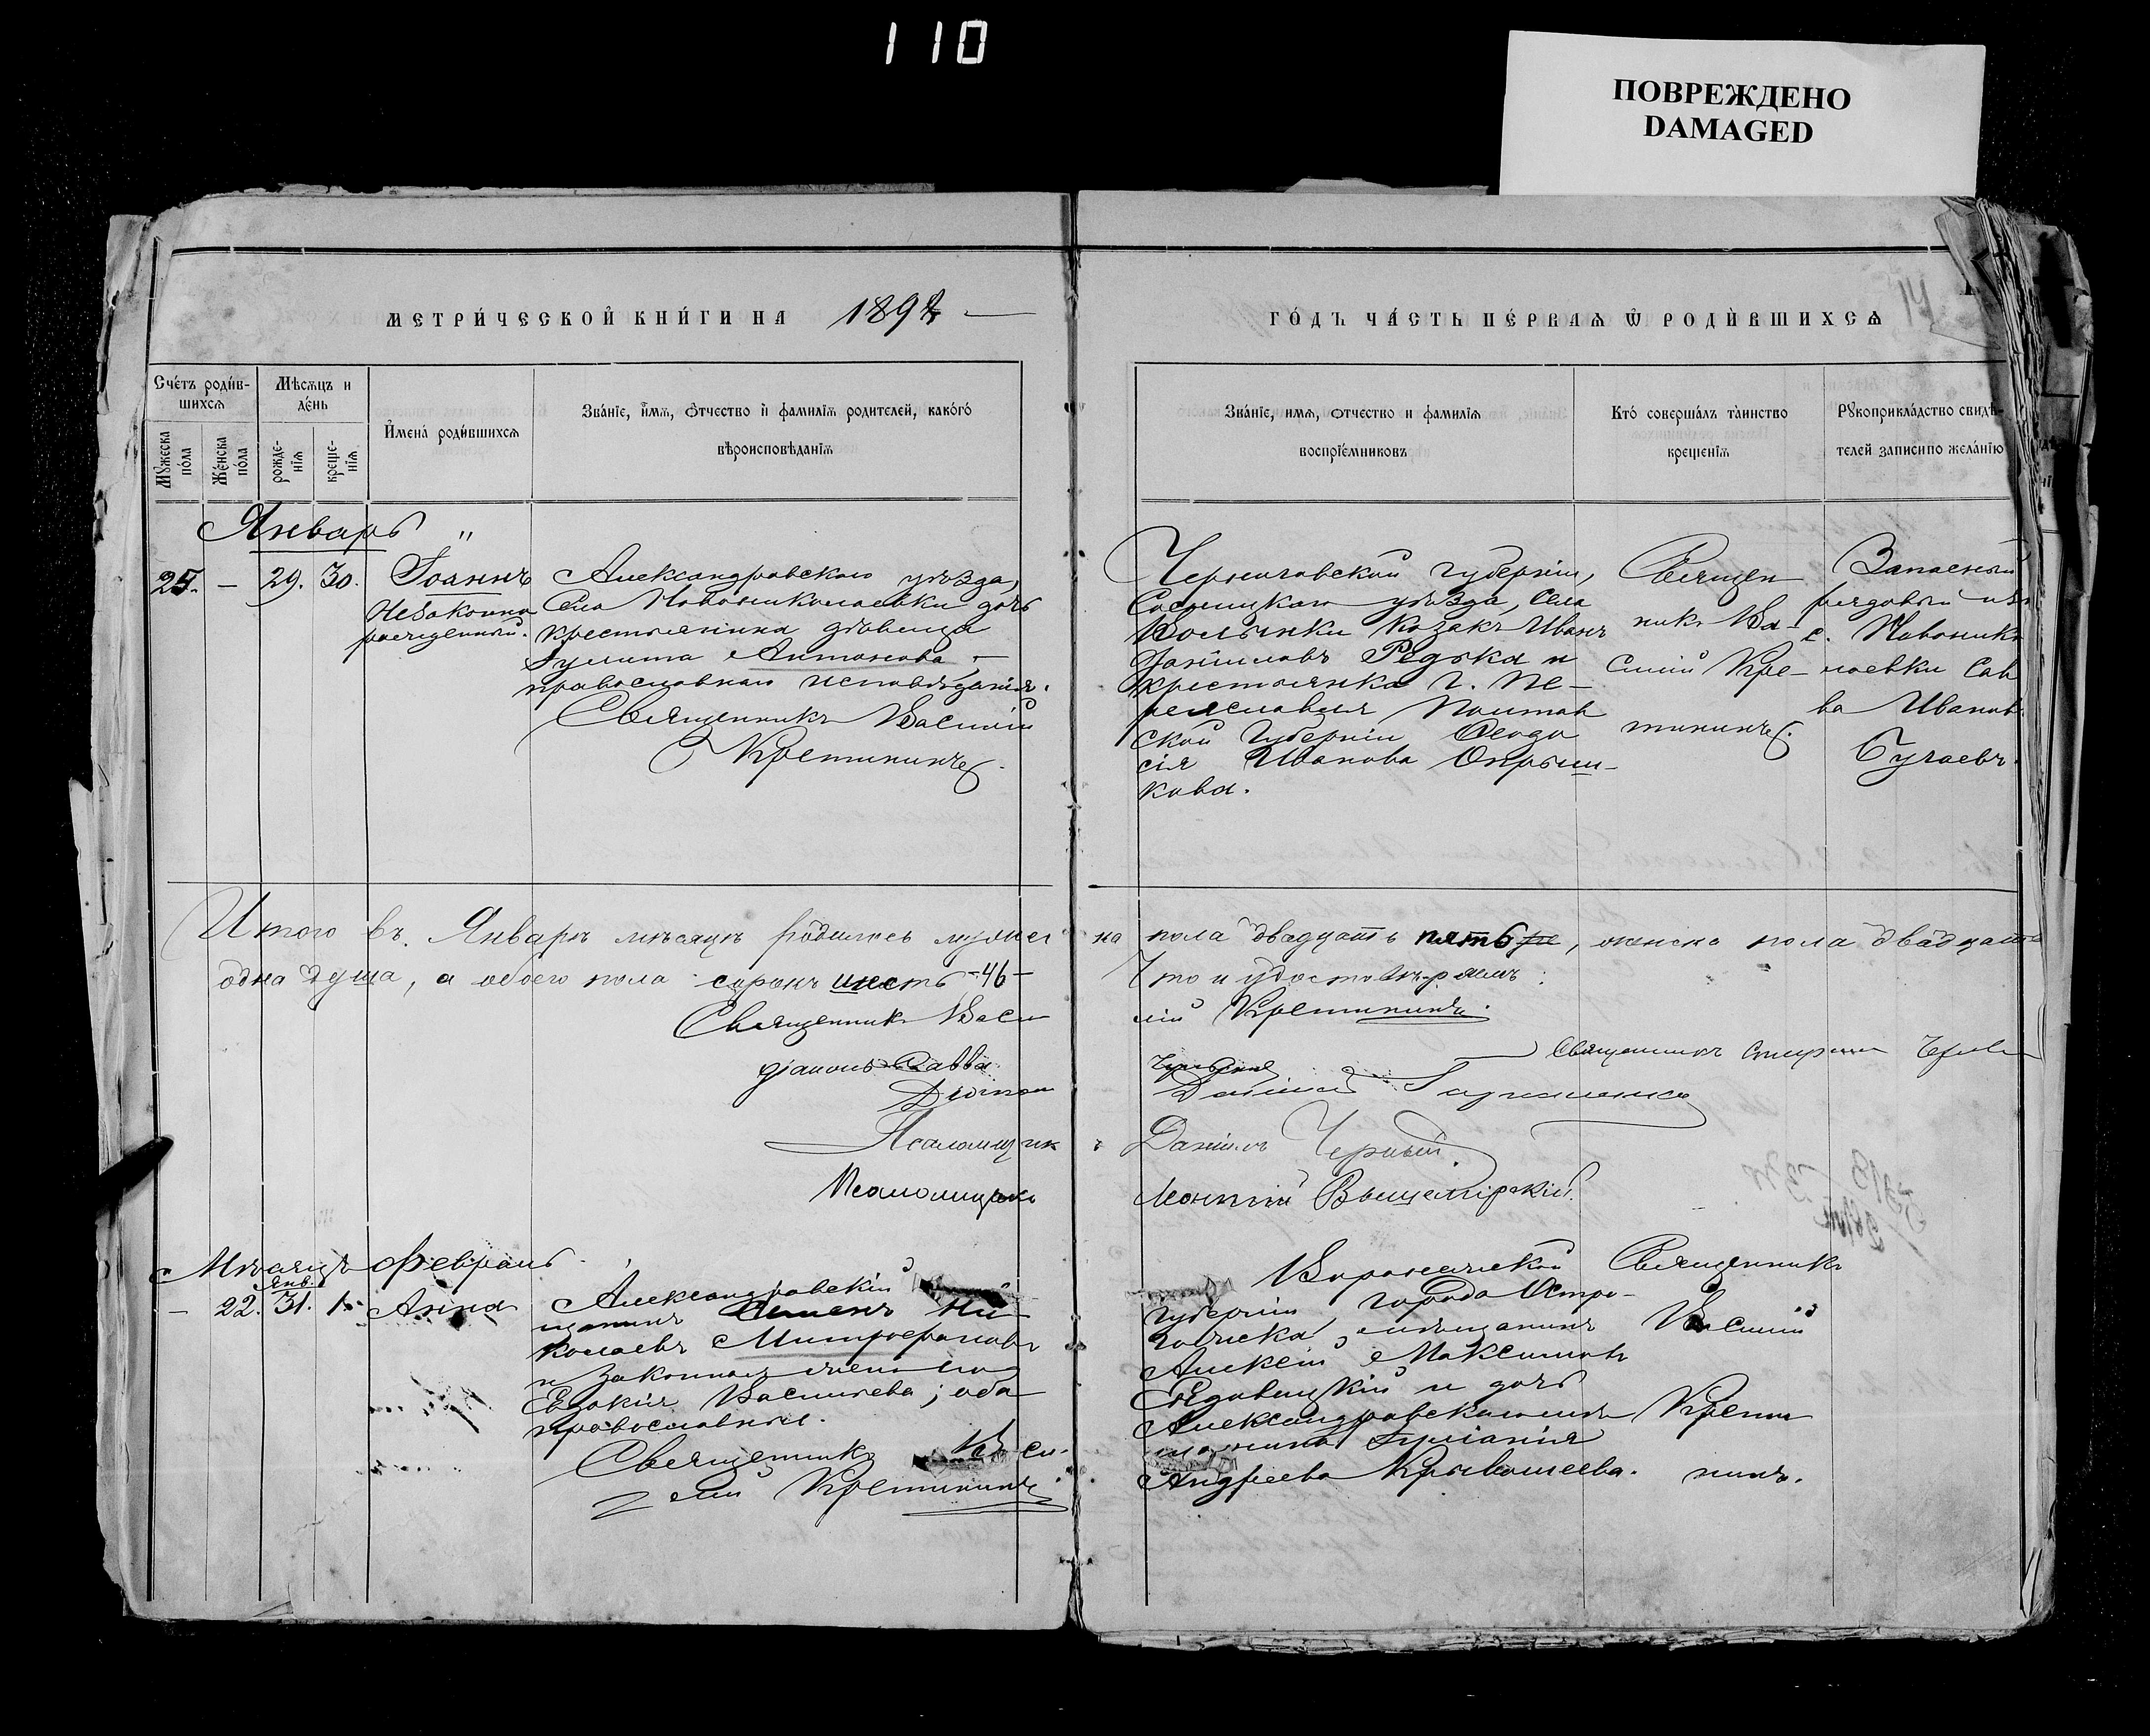 110
ПОВРЕЖДЕНО
DAMAGED
МЕТРИ́ЧЕСКОЙ КНИ́ГИ НА 1892
ГО́ДЪ ЧА́СТЬ ПЕ́РВАѦ Ѿ РОДИ́ВШИХСѦ
Сче́тъ роди́в-
шихсѧ
Мѣсѧцъ и
де́нь
Мꙋжеска
по́ла
Же́нска
по́ла
рожде-
нїѧ
креще-
нїѧ
И҆мена́ роди́вшихсѧ
Зва́нїе, и҆́мѧ, ѻ҆́тчество и҆ фами́лїѧ родителей, како́гѡ́
вѣроисповѣ́данїѧ
Зва́нїе, имѧ, ѻтчество и фами́лїѧ
воспрїе́мниковъ
Кто́ соверша́лъ та́инство
креще́нїѧ
Рꙋкоприкла́дство свидѣ́-
телей записи по жела́нїю
Январь "
25. — 29. 30. Іоаннъ
Незаконно
рожденный.
Александровскаго уѣзда,
села Новониколаевки дочь
крестьянина дѣвица
Іулита Антонова —
православнаго исповѣданія.
Священникъ Василій
Кретининъ.
Черниговской губерніи,
Сосницкаго уѣзда, села
Волынки козакъ Иванъ
Даніиловъ Редька и
крестьянка г. Пе-
реяславля Полтав
ской губерніи Ѳеодо
сія Иванова Опрыш-
кова.
Священ
никъ Ва-
силій Кре-
тининъ.
Запасный
рядовый изъ
с. Новонико
лаевки Сав
ва Иванов
Бугаевъ.
Итого въ Январѣ мѣсяцѣ родилось мужес
ка пола двадцать пять, женска пола двадцать
одна душа, а обоего пола сорокъ шесть -46-
Что и удостовѣряемъ:
Священникъ Васи
лій Кретининъ.
Священникъ
діаконъ Савва
Діакон
Даніилъ
Псаломщик
Даніилъ Черный.
Псаломщикъ
Леонтій Вышемірскій.
Мѣсяцъ Февраль
Янв.
— 22. 31. 1. Анна
Александровскій
щанинъ Семенъ Ни
колаевъ Митрофановъ
и законная жена его
Евдокія Васильева; оба
православные.
Священникъ Васи-
лій Кретининъ.
Воронежской
губерніи, города Остро-
гожска, мѣщанинъ
Алексѣй Максимовъ
Сядовицкій и дочь
Александровскаго мѣ
щанина Іуліанія
Андреева Кривошеева.
Священникъ
Василій
Крети
нинъ.